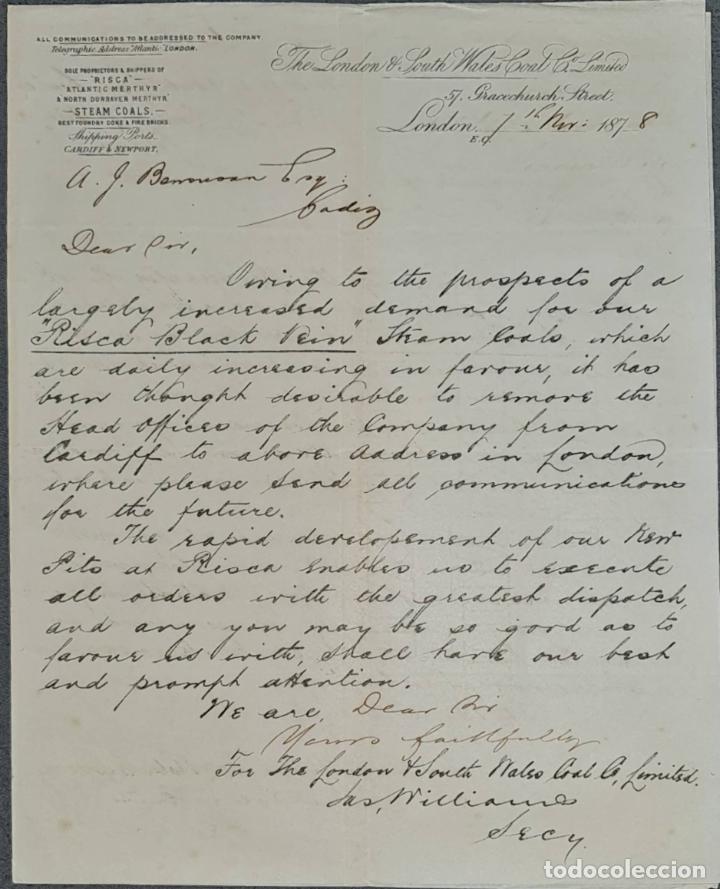 ALL COMMUNICATIONS TO BE ADDRESSED TO THE COMPANY.
Telegraphic Address "Atlantic" LONDON.
SOLE PROPRIETORS & SHIPPERS OF
"RISCA"
"ATLANTIC MERTHYR"
& NORTH DUNRAVEN MERTHYR
STEAM COALS,
BEST FOUNDRY COKE & FIRE BRICKS.
Shipping Ports,
CARDIFF & NEWPORT.
The London & South Wales Coal Co. Limited
57, Gracechurch Street.
London, E.C. 7th Nov: 1878
A. J. Bensusan Esq:
Cadiz
Dear Sir,
Owing to the prospects of a
largely increased demand for our
"Risca Black Vein" Steam Coals, which
are daily increasing in favour, it has
been thought desirable to remove the
Head Offices of the Company from
Cardiff to above Address in London,
where please send all communications
for the future.
The rapid developement of our New
Pits at Risca enables us to execute
all orders with the greatest dispatch,
and any you may be so good as to
favour us with, shall have our best
and prompt attention.
We are, Dear Sir
Yours faithfully
For The London & South Wales Coal Co, Limited.
Jas, Williams
Secy.
todocoleccion